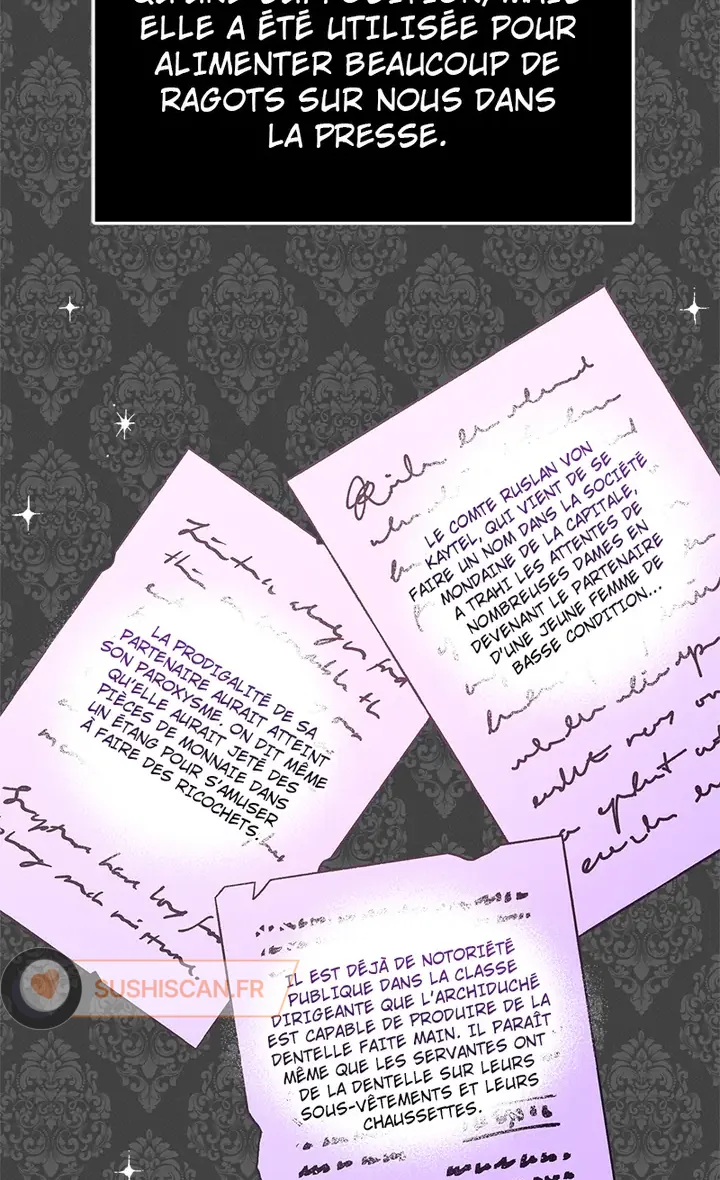 ELLE A ÉTÉ UTILISÉE POUR
ALIMENTER BEAUCOUP DE
RAGOTS SUR NOUS DANS
LA PRESSE.
LE COMTE RUSLAN VON
KAYTEL, QUI VIENT DE SE
FAIRE UN NOM DANS LA SOCIÉTÉ
MONDAINE DE LA CAPITALE,
A TRAHI LES ATTENTES DE
NOMBREUSES DAMES EN
DEVENANT LE PARTENAIRE
D'UNE JEUNE FEMME DE
BASSE CONDITION...
LA PRODIGALITÉ DE SA
PARTENAIRE AURAIT ATTEINT
SON PAROXYSME. ON DIT MÊME
QU'ELLE AURAIT JETÉ DES
PIÈCES DE MONNAIE DANS
UN ÉTANG POUR S'AMUSER
À FAIRE DES RICOCHETS.
IL EST DÉJÀ DE NOTORIÉTÉ
PUBLIQUE DANS LA CLASSE
DIRIGEANTE QUE L'ARCHIDUCHÉ
EST CAPABLE DE PRODUIRE DE LA
DENTELLE FAITE MAIN. IL PARAÎT
MÊME QUE LES SERVANTES ONT
DE LA DENTELLE SUR LEURS
SOUS-VÊTEMENTS ET LEURS
CHAUSSETTES.
SUSHISCAN.FR